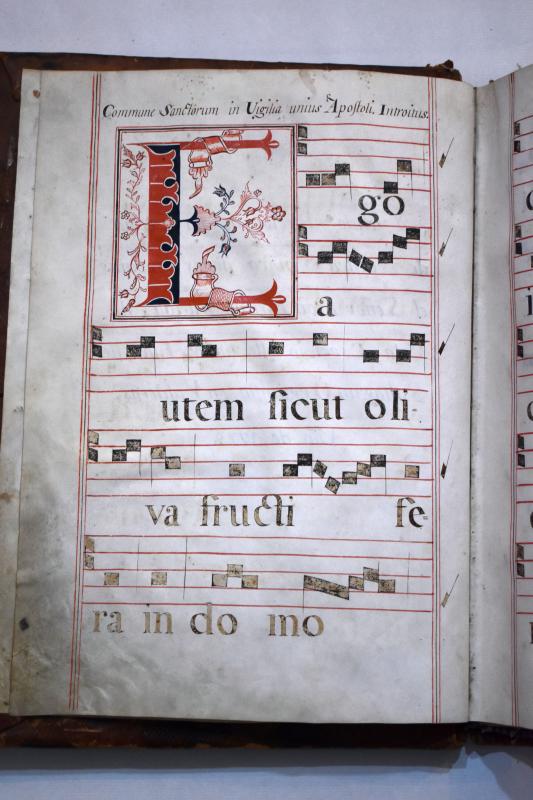 Commune Sanctorum in Vigilia unius Apostoli. Introitus.
Ego
a
utem sicut oli-
va fructi fe-
ra in do mo